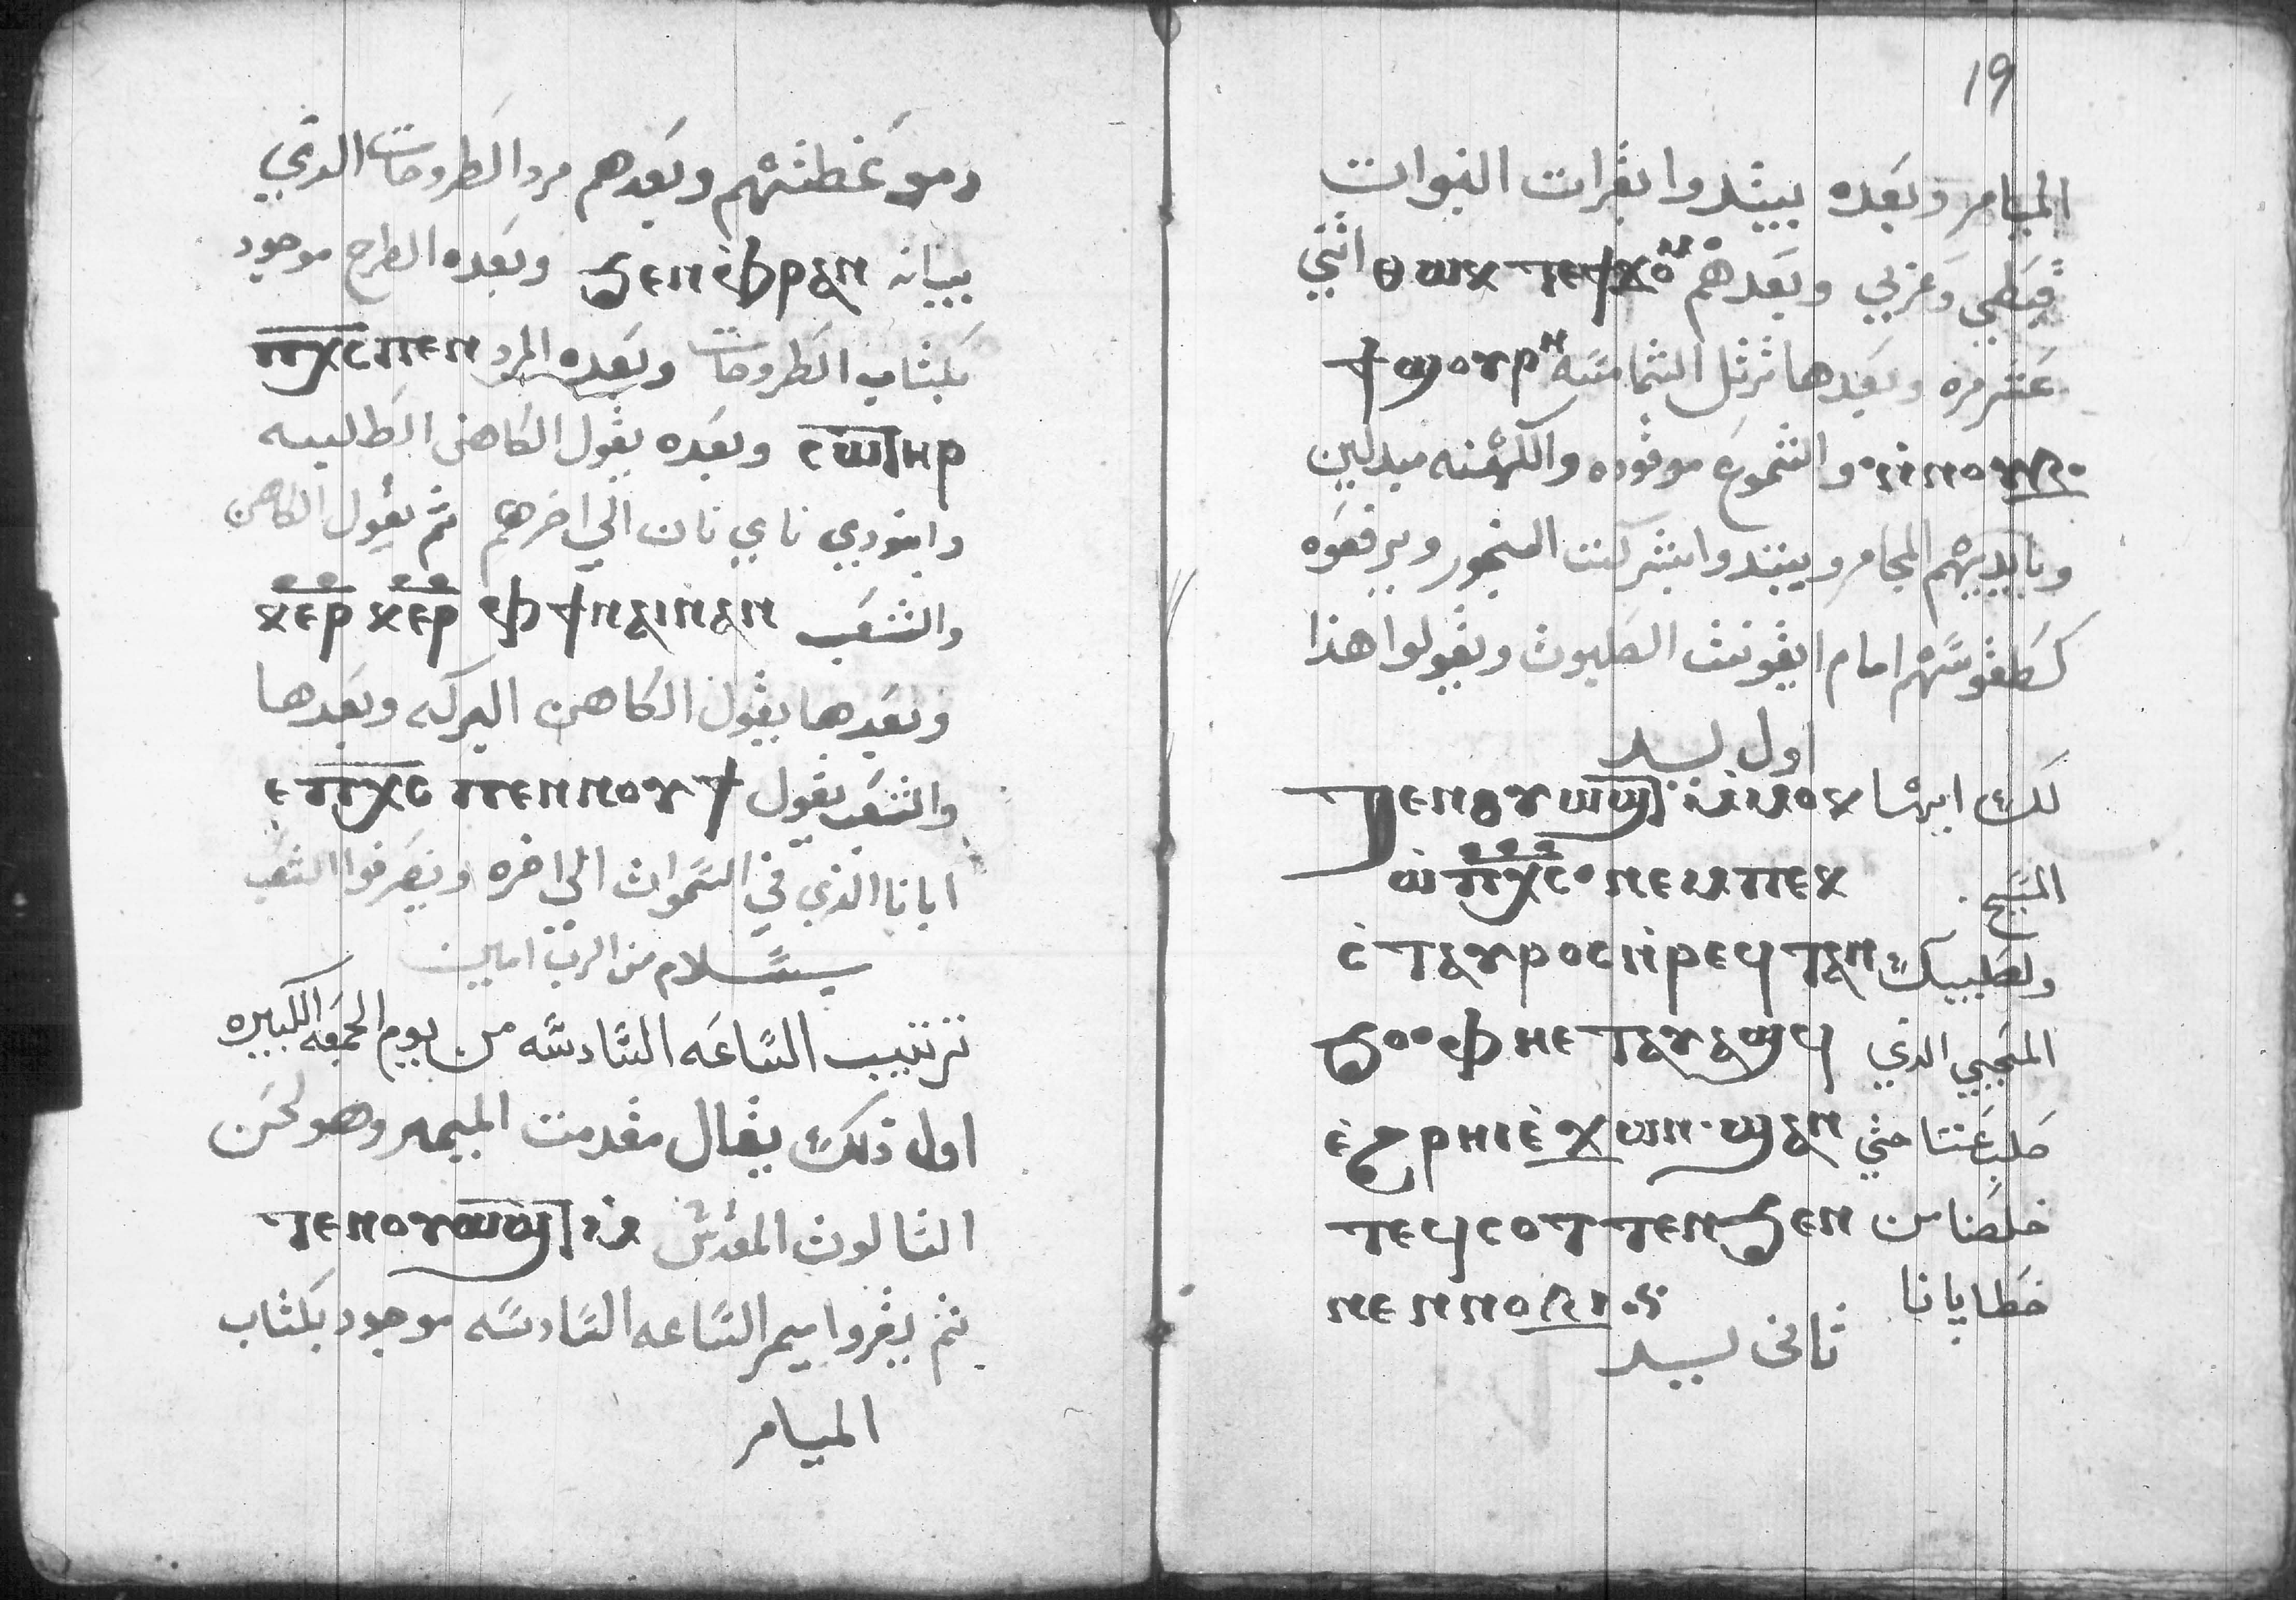 دمو عظتهم وبعدهم مرد الطروحات الذي
بيانه ϧⲉⲛⲫⲣⲁⲛ وبعده الطرح موجود
بكتاب الطروحات وبعده المرد ⲡⲭⲥⲡⲉⲛ
ⲥⲱⲧⲏⲣ وبعده يقول الكاهن الطلبه
وافنودي ناي نان الي اخرهم ثم يقول الكاهن
والشعب ⲫϯⲛⲁⲓⲛⲁⲛ ⲕⲉⲣ ⲕⲉⲣ
وبعدها يقول الكاهن البركه وبعدها
والشعب يقول ⲉⲡⲭⲥ ⲡⲉⲛⲛⲟⲩϯ
ابانا الذي في السموات الي اخره وينصرفوا الشعب
بسلام من الرب امين
ترتيب الساعه السادسه من يوم الجمعه الكبيره
اول ذلك يقال مقدمت الميمر وهو لحن
الثالوث المقدس ⲧⲉⲛⲟⲩⲱϣⲧ
ثم يقروا ميمر الساعه السادسه موجود بكتاب
الميامر
19
الميامر وبعده يبيتدوا بقرات النبوات
قبطي وعربي وبعدهم ⲑⲱⲕ ⲧⲉϯϫⲟⲙ اثني
عشر مره وبعدها ترتل الشمامسه ϯϣⲟⲩⲣⲏ
ⲛⲛⲟⲩⲃ والشموع موقوده والكهنه مبدلين
وبايديهم المجامر ويبتدوا بشركت البخور ويرفعوه
كطقوسهم امام ايقونت الصلبوت ويقولوا هذا
اول لبيد
لك ايها ⲧⲉⲛⲟⲩⲱϣⲧ ⲙⲙⲟⲕ
المسيح ⲱ ⲡⲭⲥ ⲛⲉⲙⲡⲉⲕ
ولصليبك ⲥⲧⲁⲩⲣⲟⲥⲛⲣⲉϥⲧⲁⲛ
المحيي الذي ϧⲟ ⲫⲏⲉⲧⲁⲩⲁϣϥ
صلب عنا حتي ⲉϩⲣⲏⲓⲉϫⲱⲛ ϣⲁⲛ
خلصنا من ⲧⲉϥⲥⲟⲧⲧⲉⲛϧⲉⲛ
خطايانا ⲛⲉⲛⲛⲟⲃⲓ
ثاني لبيد